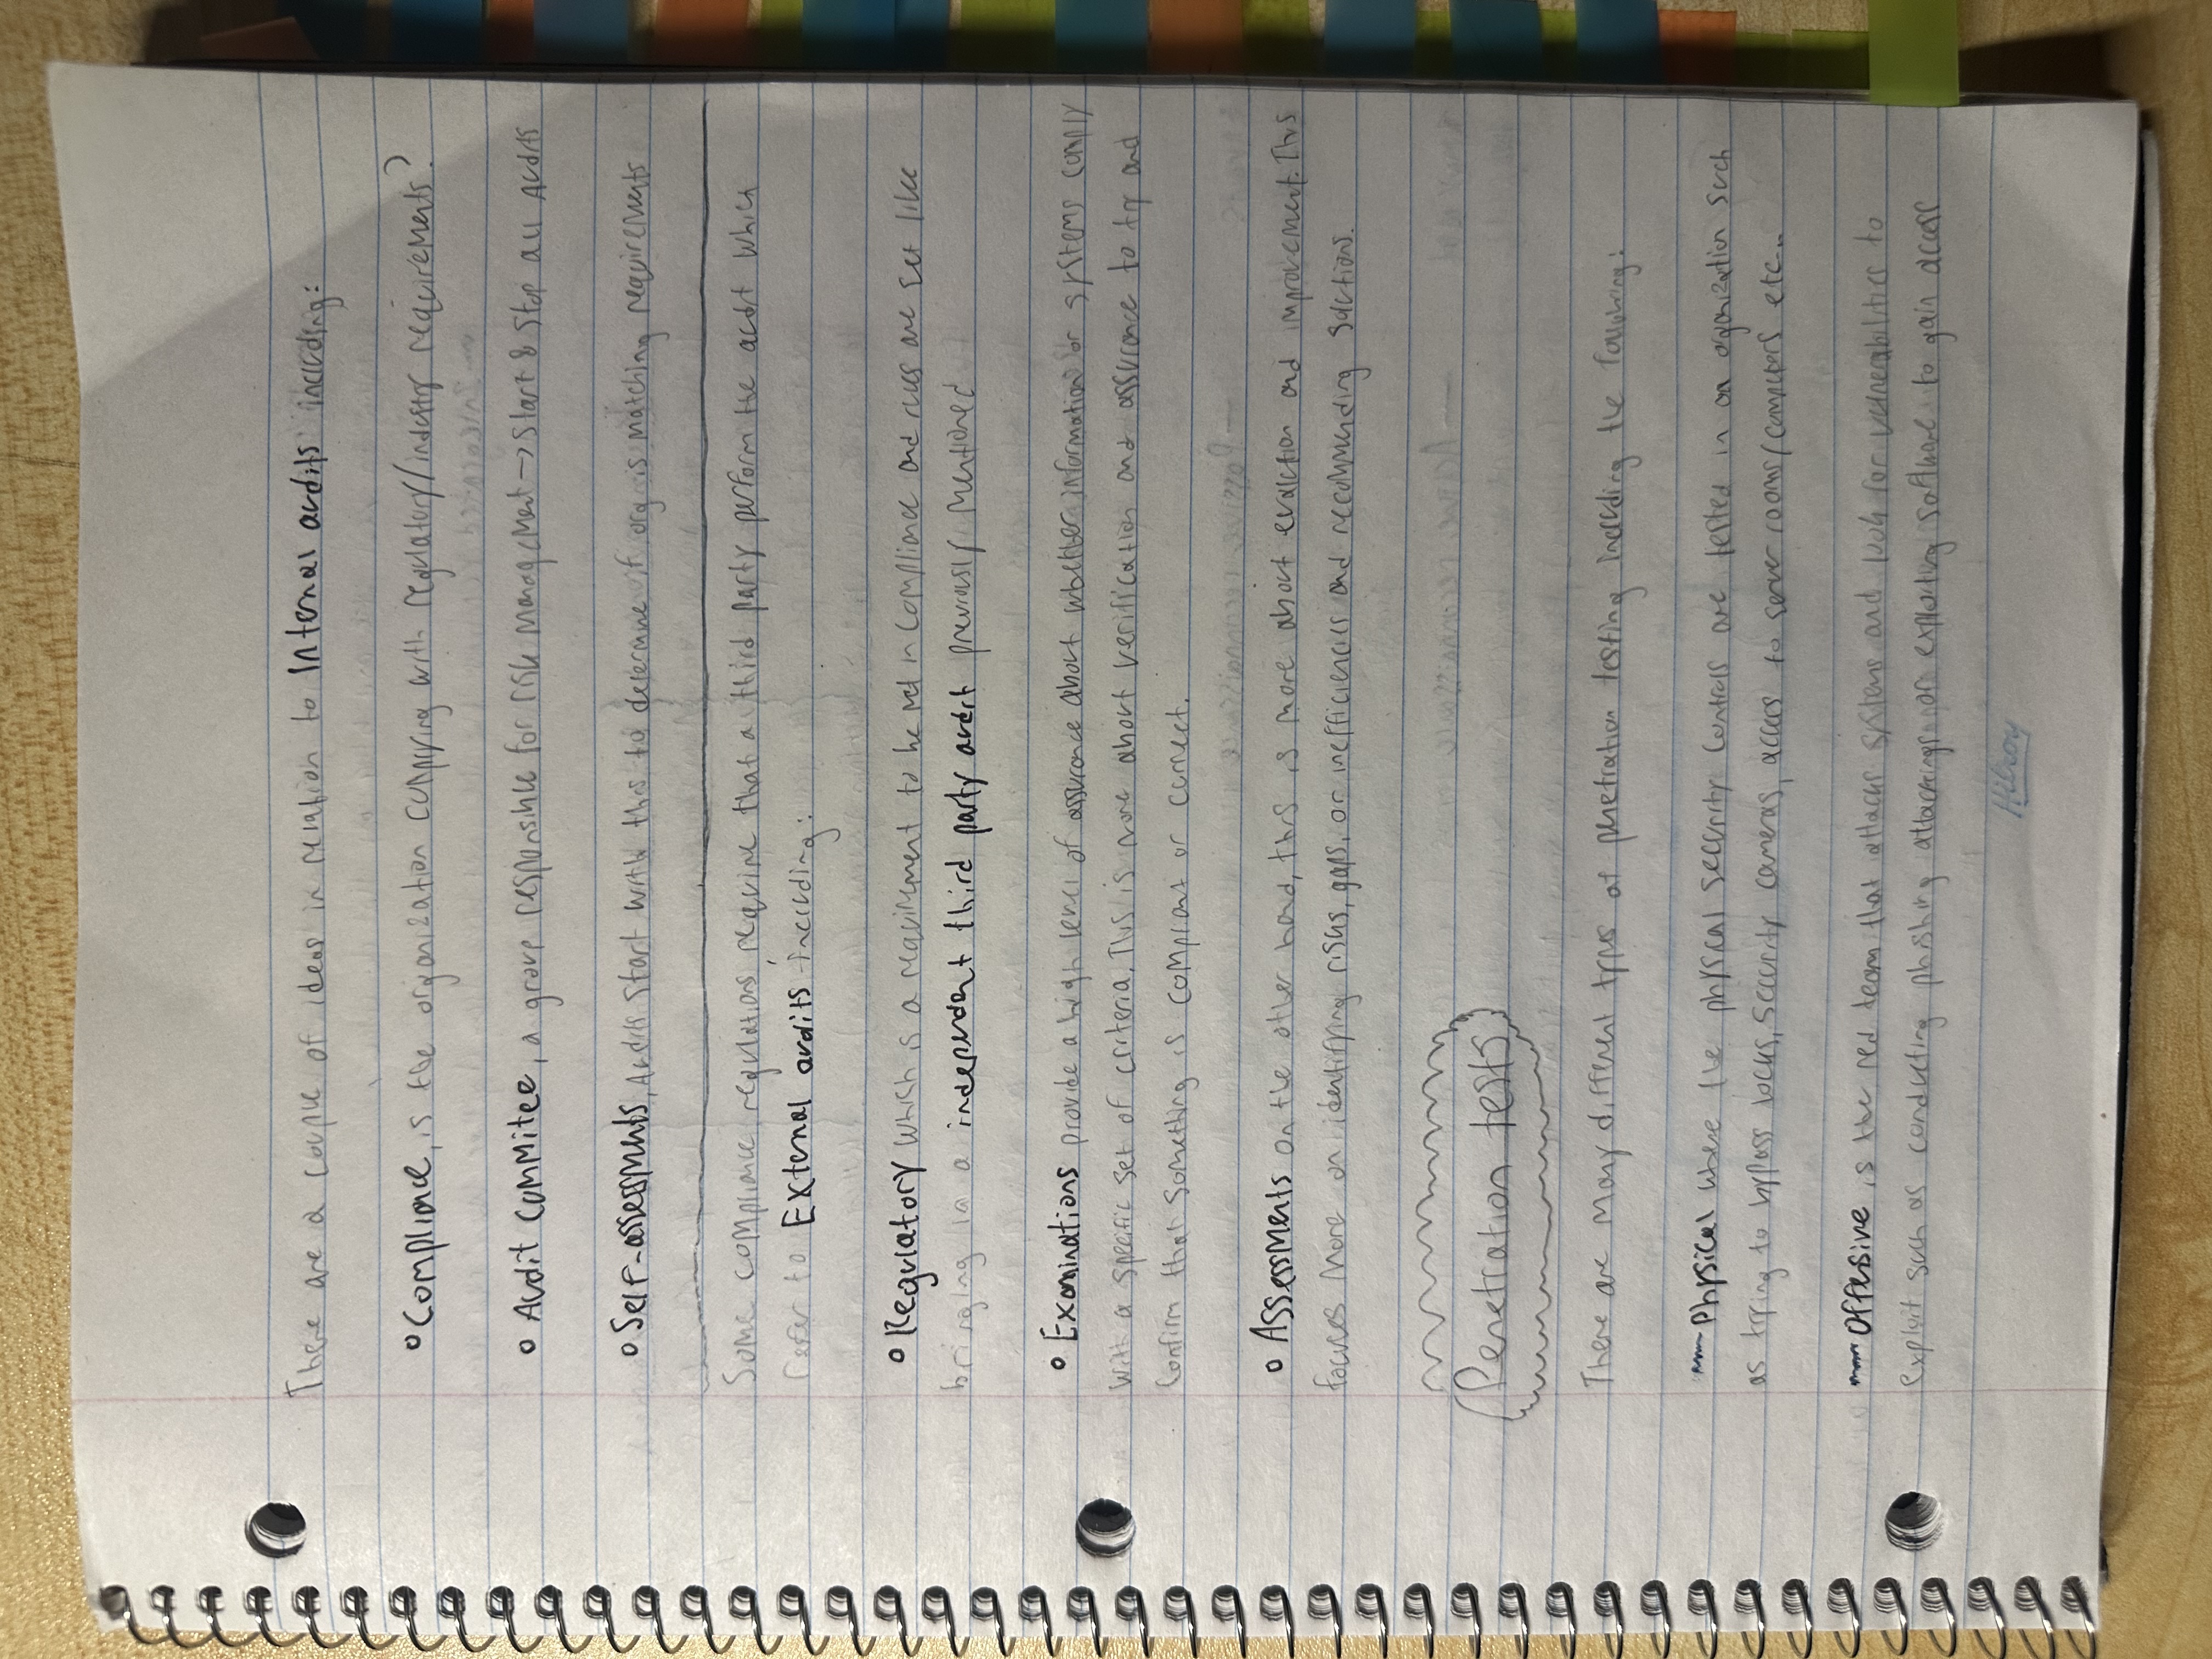 There are a couple of ideas in relation to Internal audits including:
Compliance, is the organization complying with regulatory/industry requirements?
Audit Commitee, a group responsible for risk management → Start & Stop all Audits
Self-assessments, Audits start with this to determine if org is matching requirements
Some compliance regulations require that a third party perform the audit which
refer to External audits including:
Regulatory which is a requirement to be met in compliance and rules are set like
bringing in a independent third party audit previously mentioned
Examinations provide a high level of assurance about whether information or systems comply
with a specific set of criteria. This is more about verification and assurance to try and
confirm that something is compliant or correct.
Assessments on the other hand, this is more about evalution and improvement. This
focuses more on identifying risks, gaps, or inefficiencies and recommending solutions.
Penetration tests
There are many different types of penetration testing including the following:
Physical where the physical security controls are tested in an organization such
as trying to bypass locks, security cameras, access to server rooms/computers etc...
Offensive is the red team that attacks systems and look for vulnerabilities to
exploit such as conducting phishing attackings or exploiting software to gain access
Hilroy